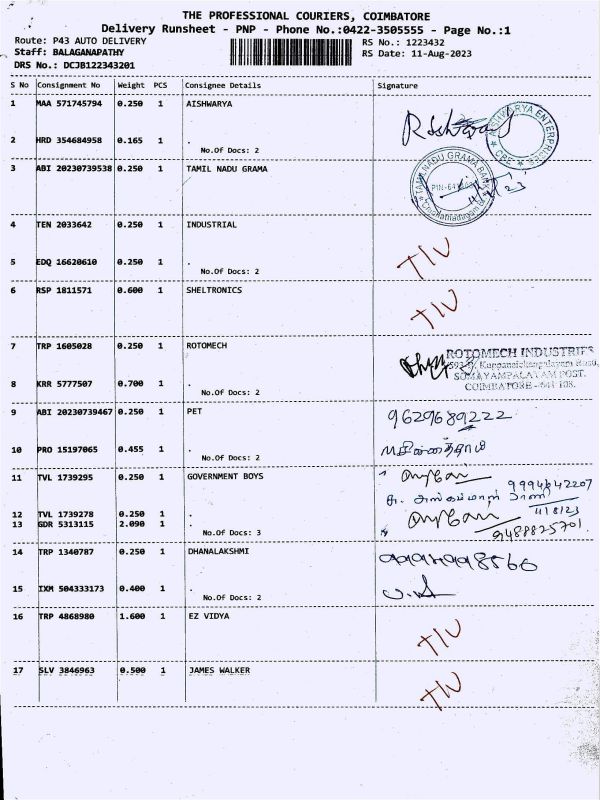 THE PROFESSIONAL COURIERS, COIMBATORE
Delivery Runsheet - PNP - Phone No.:0422-3505555 - Page No.:1
Route: P43 AUTO DELIVERY RS No.: 1223432
Staff: BALAGANAPATHY RS Date: 11-Aug-2023
DRS No.: DCJB122343201
S No Consignment No Weight PCS Consignee Details Signature
1 MAA 571745794 0.250 1 AISHWARYA
2 HRD 354684958 0.165 1 .
No.Of Docs: 2
3 ABI 20230739538 0.250 1 TAMIL NADU GRAMA
TAMIL NADU GRAMA BANK
4 TEN 2033642 0.250 1 INDUSTRIAL
5 EDQ 16620610 0.250 1 .
No.Of Docs: 2
6 RSP 1811571 0.600 1 SHELTRONICS
7 TRP 1605028 0.250 1 ROTOMECH
ROTOMECH INDUSTRIES
SOMAYAMPALAYAM POST.
COIMBATORE - 641 108.
8 KRR 5777507 0.700 1 .
No.Of Docs: 2
9 ABI 20230739467 0.250 1 PET
9629689222
10 PRO 15197065 0.455 1 .
No.Of Docs: 2
11 TVL 1739295 0.250 1 GOVERNMENT BOYS
12 TVL 1739278 0.250 1 .
13 GDR 5313115 2.090 1 .
No.Of Docs: 3
9488825701
14 TRP 1340787 0.250 1 DHANALAKSHMI
15 IXM 504333173 0.400 1 .
No.Of Docs: 2
16 TRP 4868980 1.600 1 EZ VIDYA
17 SLV 3846963 0.500 1 JAMES WALKER